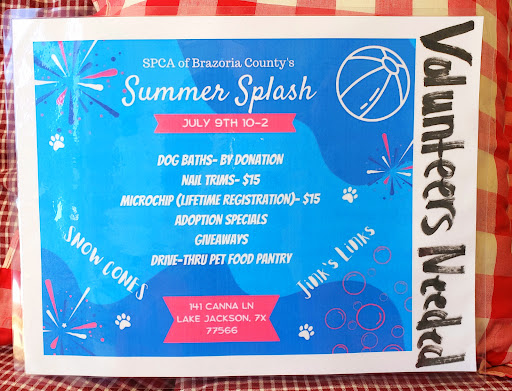 SPCA of Brazoria County's
Summer Splash
JULY 9TH 10-2
DOG BATHS- BY DONATION
NAIL TRIMS- $15
MICROCHIP (LIFETIME REGISTRATION)- $15
ADOPTION SPECIALS
GIVEAWAYS
DRIVE-THRU PET FOOD PANTRY
SNOW CONES
Jink's Links
141 CANNA LN
LAKE JACKSON, 7X
77566
Volunteers Needed